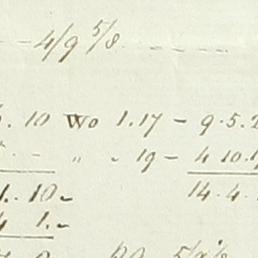 4/9 5/8
10 Wo 1.17 - 9.5.2
" . 19 - 4 10.1
1.. 10. - 14.4.
4 1. -